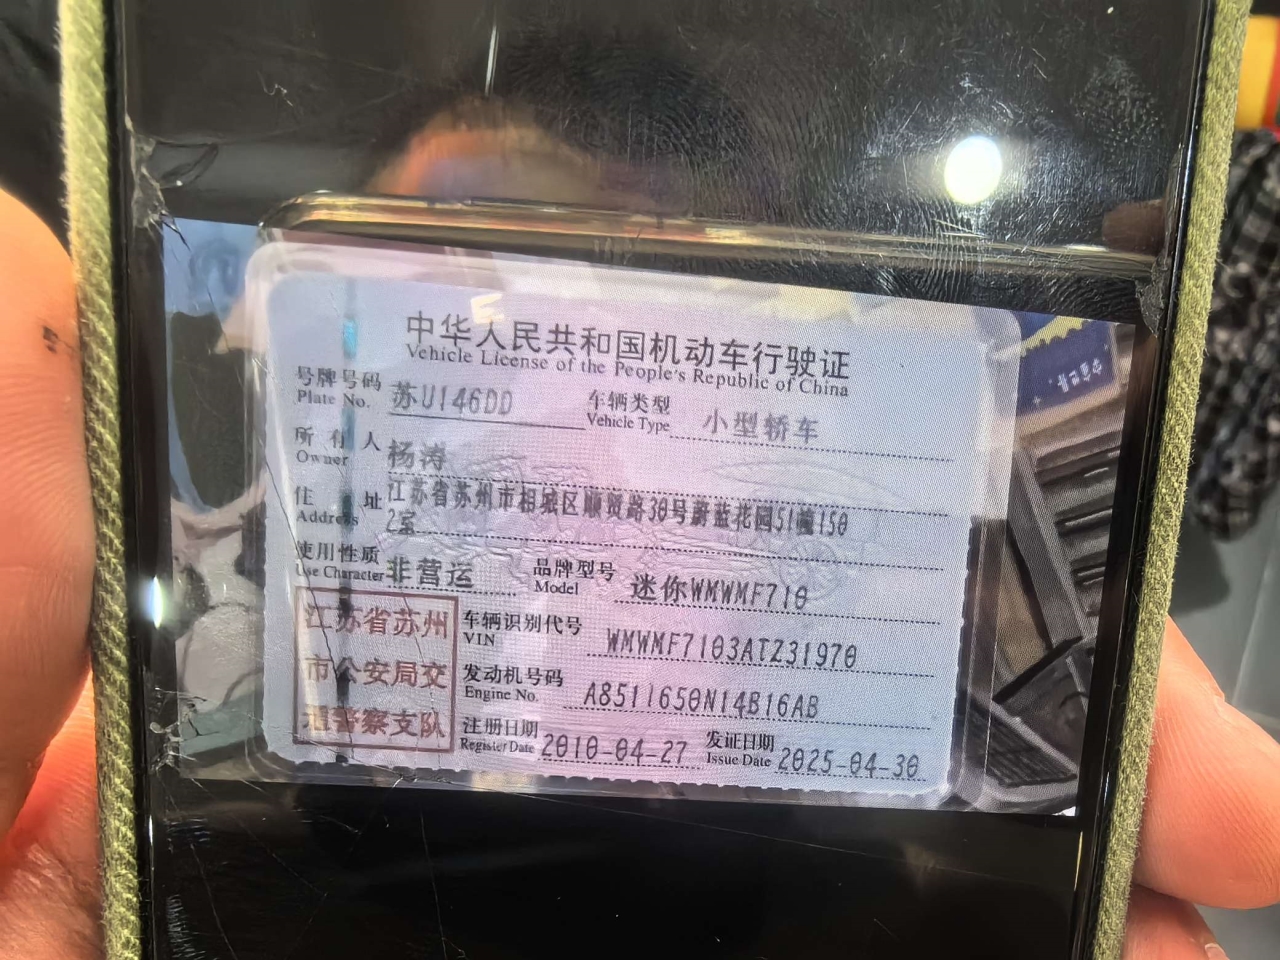 中华人民共和国机动车行驶证
Vehicle License of the People's Republic of China
号牌号码 苏U146DD 车辆类型 小型轿车
Plate No. Vehicle Type
所有人 杨涛
Owner
住址 江苏省苏州市相城区顺贤路30号蔚蓝花园51幢150
Address 2室
使用性质 非营运 品牌型号 迷你WMWMF710
Use Character Model
江苏省苏州 车辆识别代号 WMWMF7103ATZ31970
VIN
市公安局交 发动机号码 A8511650N14B16AB
Engine No.
通警察支队 注册日期 2010-04-27 发证日期 2025-04-30
Register Date Issue Date